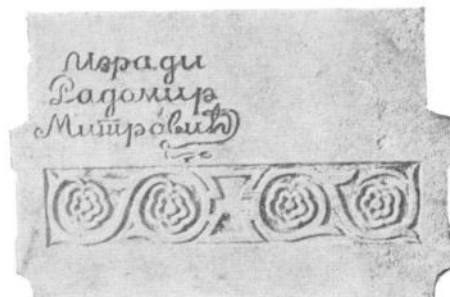 изради
Радомир
Митровић